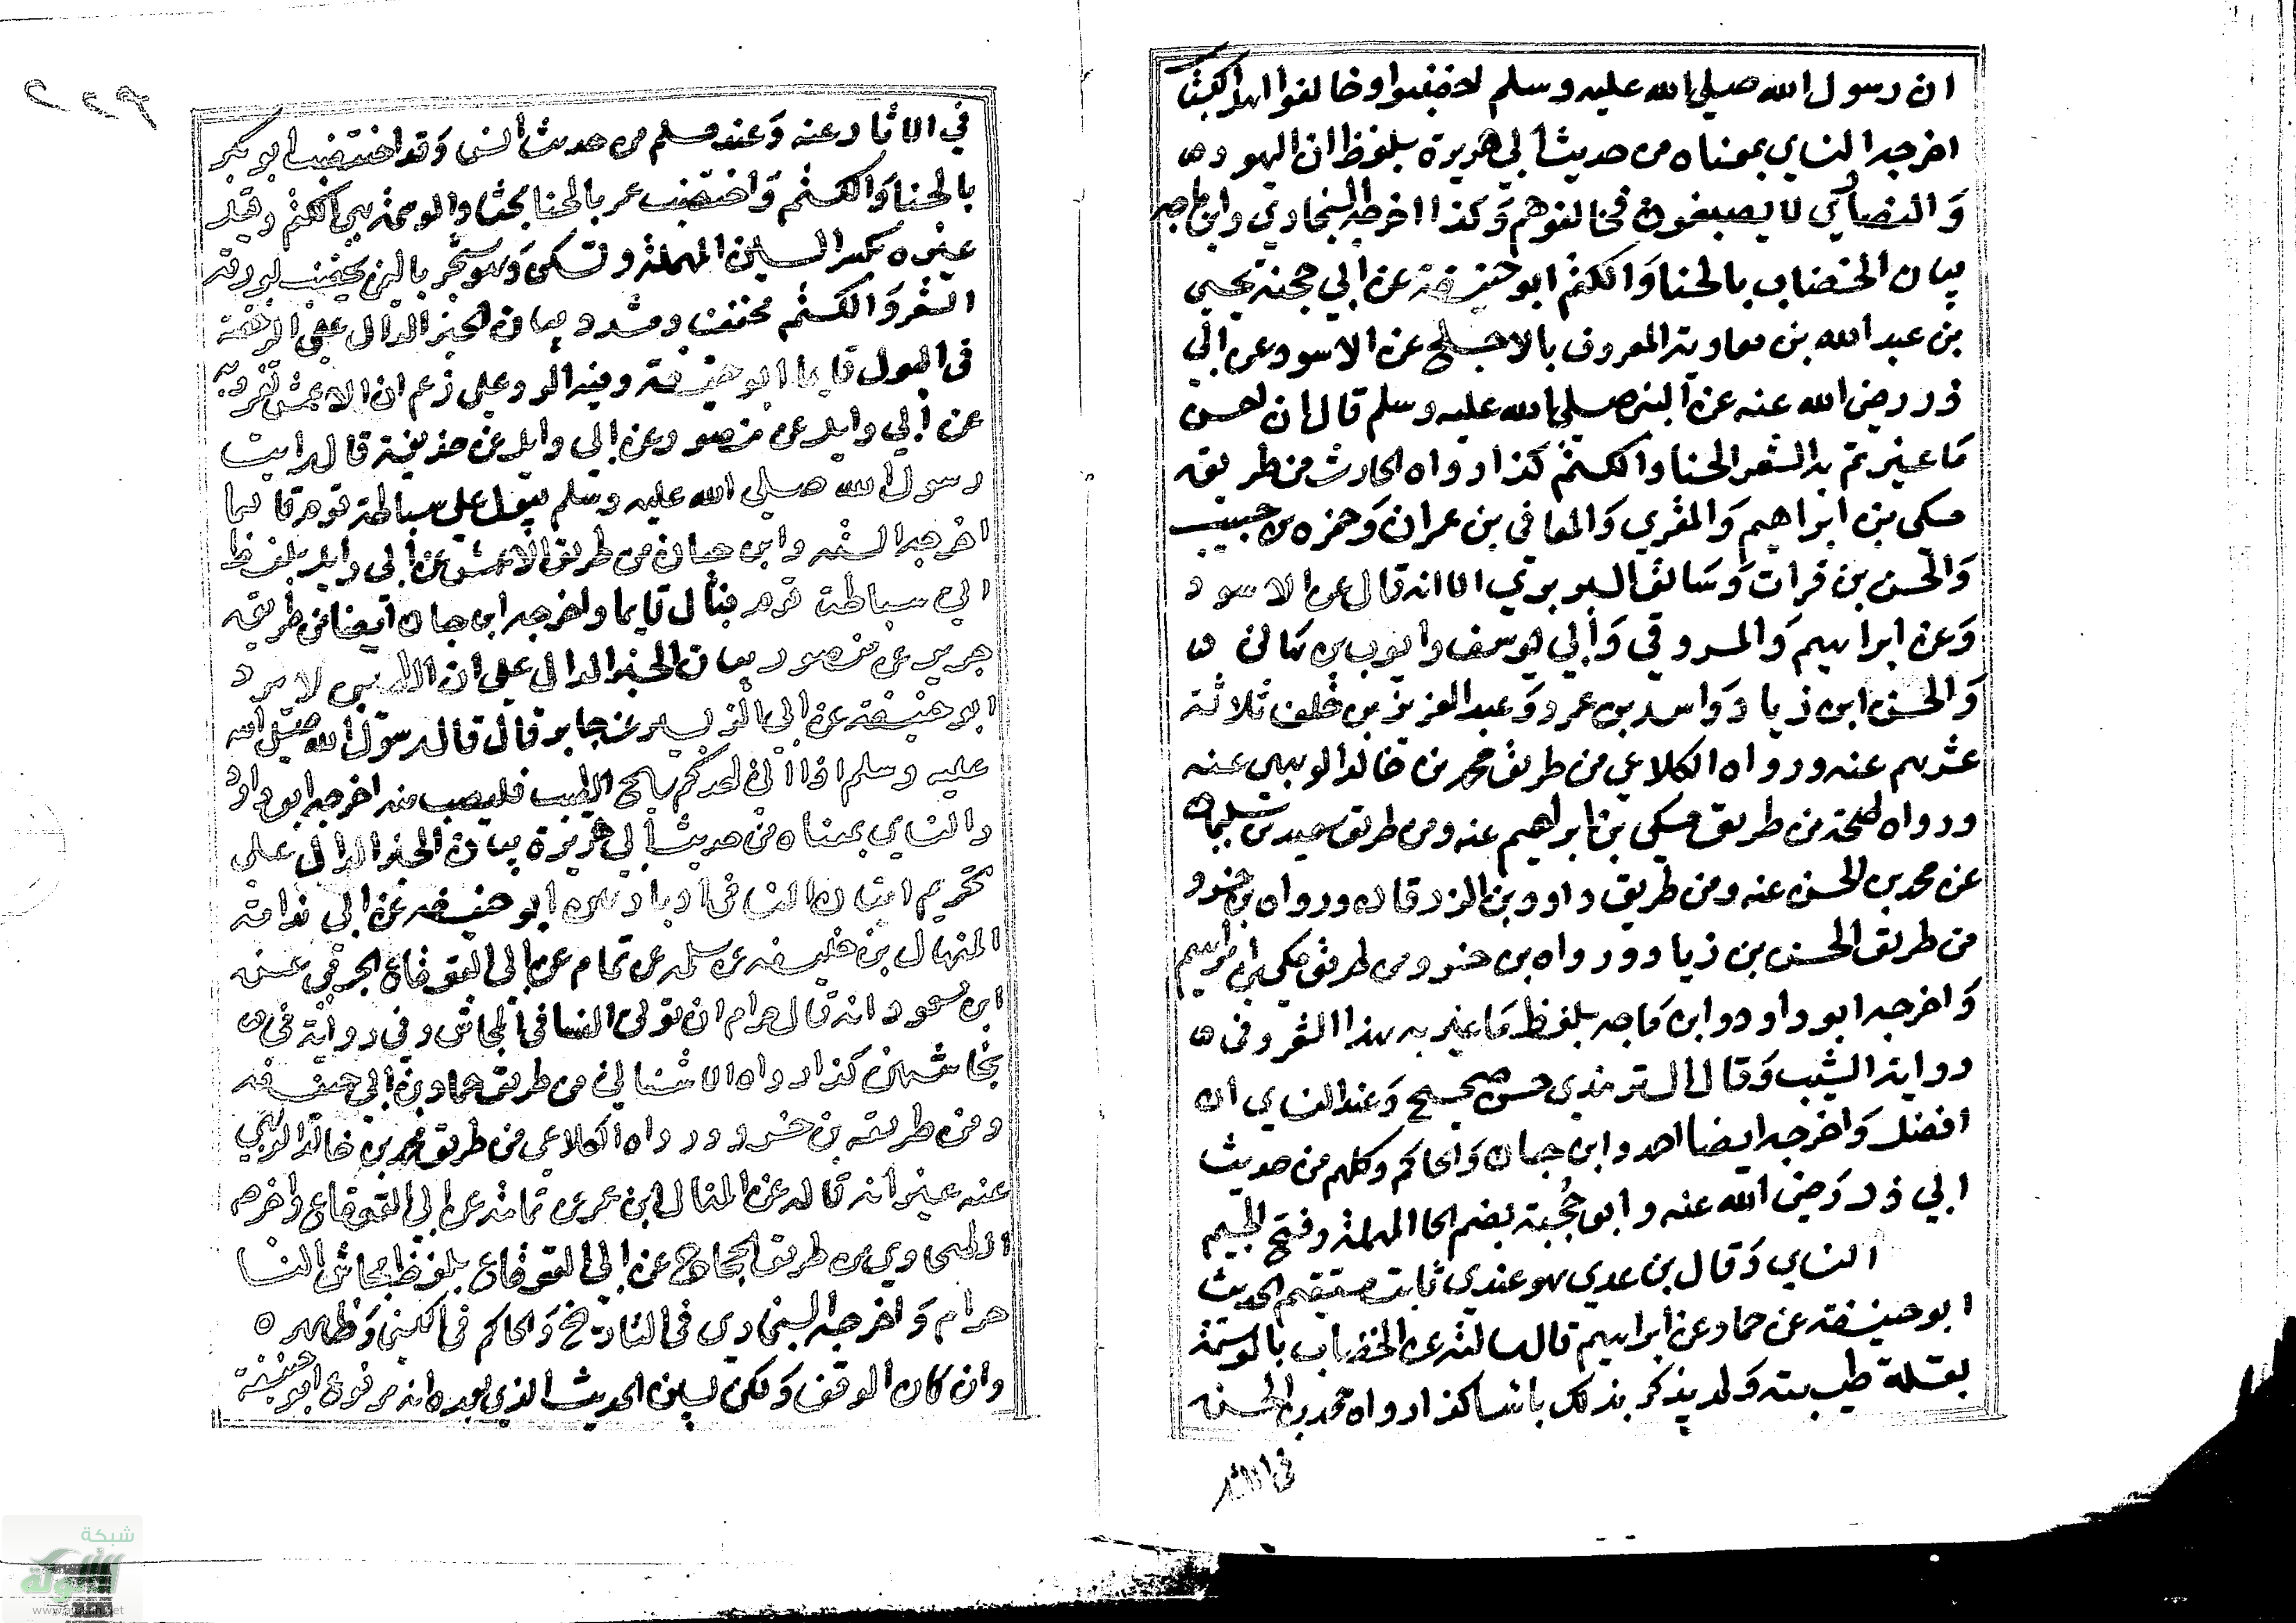 ان رسول الله صلى الله عليه وسلم اختضبوا وخالفوا اهل الكتاب
اخرجه النساي بمعناه من حديث ابي هريرة بلفظ ان اليهود
والنصارى لا يصبغون فخالفوهم وكذا اخرجه البخاري وابن ماجه
بيان الخضاب بالحنا والكتم ابو حنيفة عن ابي حجية يحيى
بن عبد الله بن معاوية المعروف بالاجلح عن الاسود عن ابي
ذر رضي الله عنه عن النبي صلى الله عليه وسلم قال ان احسن
ما غيرتم به الشعر الحنا والكتم كذا رواه الحارث من طريق
مكى بن ابراهيم والمقري والمعافى بن عمران وحمزه بن حبيب
والحسن بن فرات وسابق البربري الا انه قال عن الاسود
وعن ابراهيم والمسروقي وابي يوسف وايوب بن هانئ
والحسن ابن زياد واسد بن عمرو وعبد العزيز بن خلف ثلاثة
عشرهم عنه ورواه الكلاعي من طريق محمد بن خالد الوهبي عنه
ورواه طلحة من طريق مكى بن ابراهيم عنه ومن طريق سعيد بن سليمان
عن محمد بن الحسن عنه ومن طريق داوود بن الزبرقان ورواه بن خسرو
من طريق الحسن بن زياد ورواه بن خسرو من طريق مكي بن ابراهيم
واخرجه ابو داود وابن ماجه بلفظ ما غير به هذا الشعر وفى
رواية الشيب وقال الترمذي حسن صحيح وعند النساي ان
افضل واخرجه ايضا احمد وابن حبان والحاكم وكلهم من حديث
ابي ذر رضى الله عنه وابو حجية بضم الحا المهملة وفتح الجيم
النساي وقال بن عدي هو عندي ثابت مستقيم الحديث
ابو حنيفة عن حماد عن ابراهيم قال سالته عن الخضاب بالوسمة
بقلة طيبته ولم يذكر بذلك باسا كذا رواه محمد بن الحسن
فى الاثار
٢٢٩
في الاثار عنه وعند مسلم من حديث انس وقد اختضب ابو بكر
بالحنا والكتم واختضب عمر بالحنا بحتا والوسمة هي الكتم وقيل
غيره بكسر السين المهملة وتسكن وهو شجر باليمن يخضب بورقه
الشعر والكتم مخفف ومشدد بيان الخبر الدال على الرخصة
فى البول قايما ابو حنيفة وفيه الرد على زعم ان الاعمش تفرد به
عن ابي وايل عن منصور عن ابي وايل عن حذيفة قال رايت
رسول الله صلى الله عليه وسلم يبول على سباطة قوم قايما
اخرجه الستة وابن حبان من طريق الاعمش عن ابي وايل بلفظ
اتى سباطة قوم فبال قايما واخرجه ابن حبان ايضا من طريق
جرير عن منصور بيان الخبر الدال على ان الطيب لا يرد
ابو حنيفة عن ابي الزبير عن جابر قال قال رسول الله صلى الله
عليه وسلم اذا اتى احدكم بريح الطيب فليصب منه اخرجه ابو داود
والنساي بمعناه من حديث ابي هريرة بيان الخبر الدال على
تحريم اتيان النسا فى ادبارهن ابو حنيفه عن ابى قدامة
المنهال بن خليفه عن سلمه عن تمام عن ابي القعقاع الجرمي عن
ابن مسعود انه قال حرام ان توتى النسا فى المحاش وفي رواية فى
محاشهن كذا رواه الاشناني من طريق حماد بن ابي حنيفه
ومن طريقه بن خسرو ورواه الكلاعي من طريق محمد بن خالد الوهبي
عنه غير انه قال عن المنهال ابن عمر عن ثمامة عن ابي القعقاع واخرجه
الطحاوي من طريق الحجاج عن ابي القعقاع بلفظ محاش النسا
حرام واخرجه البخاري فى التاريخ والحاكم فى الكنى وظاهره
وان كان الوقف ولكن يبين الحديث الذي بعده انه مرفوع ابو حنيفة